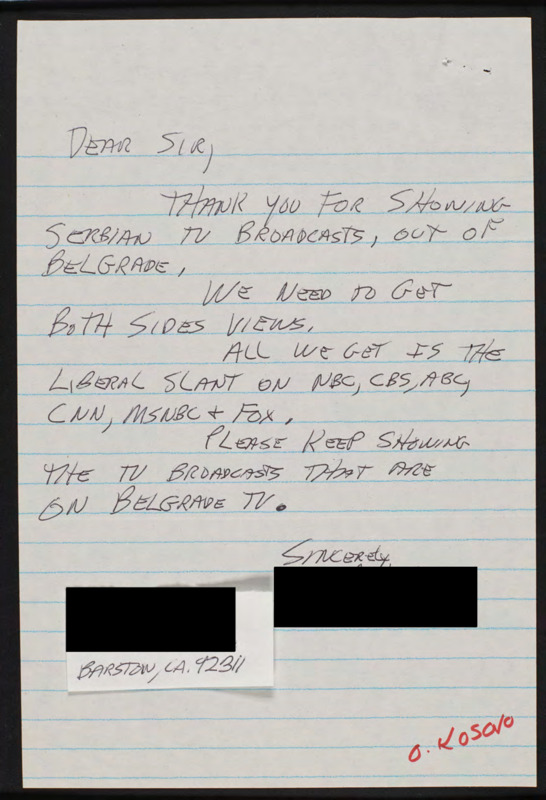 DEAR SIR,
THANK YOU FOR SHOWING
SERBIAN TV BROADCASTS, OUT OF
BELGRADE,
WE NEED TO GET
BOTH SIDES VIEWS.
ALL WE GET IS THE
LIBERAL SLANT ON NBC, CBS, ABC,
CNN, MSNBC & FOX.
PLEASE KEEP SHOWING
THE TV BROADCASTS THAT ARE
ON BELGRADE TV.
SINCERELY,
BARSTOW, CA. 92311
O. KOSOVO